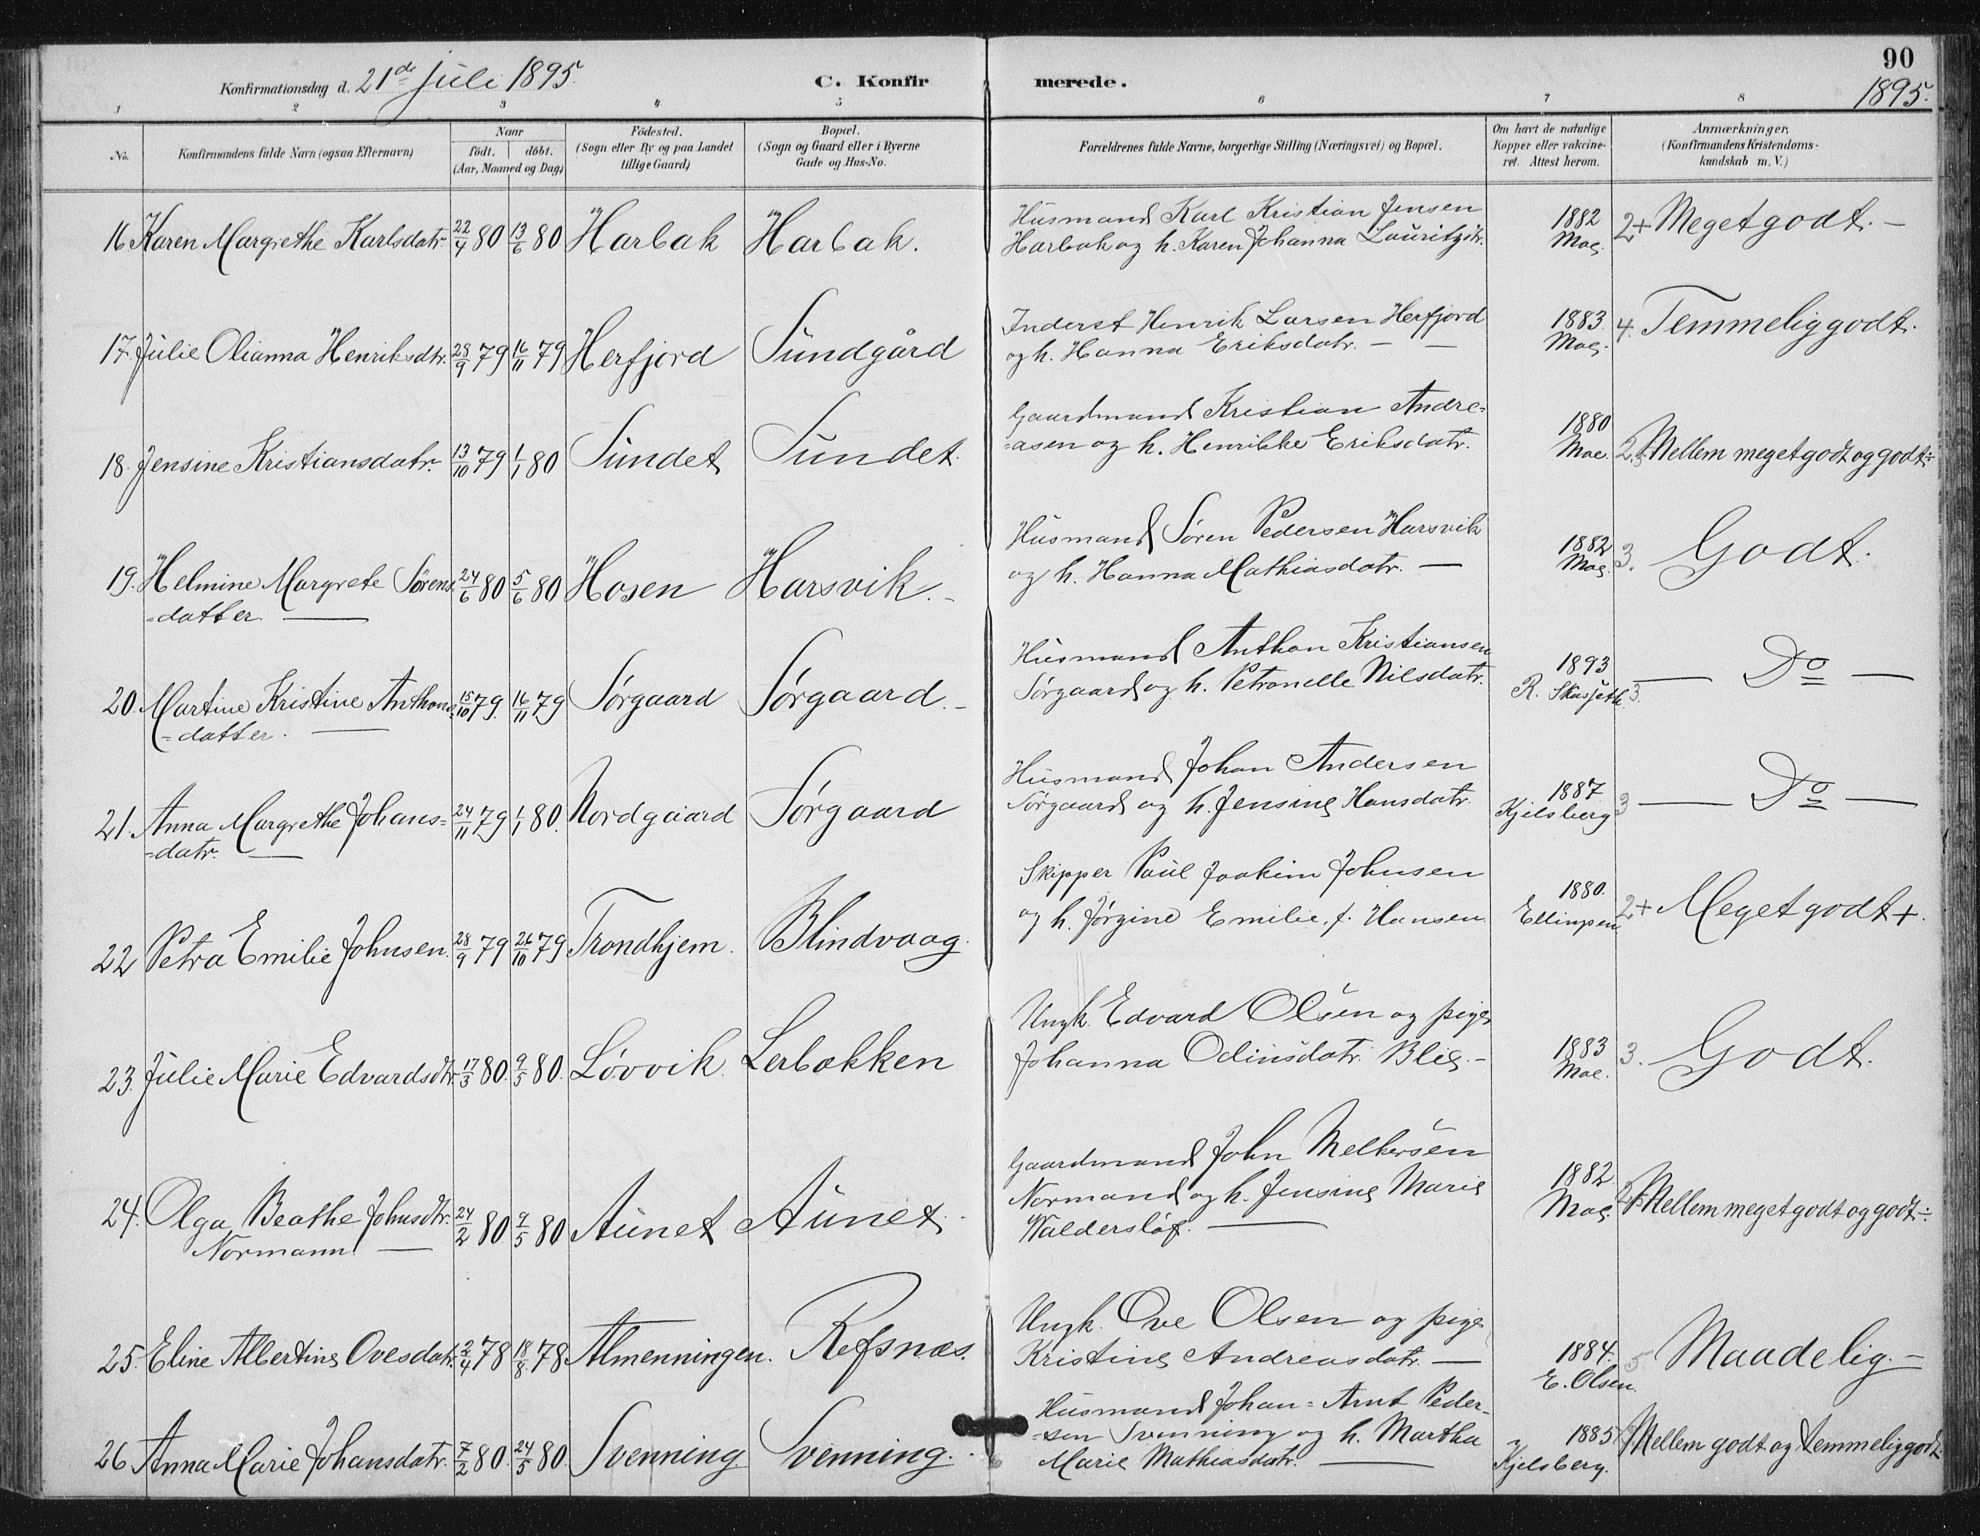 90
Konfirmationsdag d. 21de Juli 1895.
C. Konfirmerede.
1895.
1 2 3 4 5 6 7 8
No.
Konfirmandens fulde Navn (ogsaa Efternavn)
Naar
födt. döbt.
(Aar, Maaned og Dag)
Födested.
(Sogn eller By og paa Landet
tillige Gaard)
Bopæl.
(Sogn og Gaard eller i Byerne
Gade og Hus-No.
Forældrenes fulde Navne, borgerlige Stilling (Næringsvei) og Bopæl.
Om havt de naturlige
Kopper eller vakcine-
ret. Attest herom.
Anmærkninger.
(Konfirmandens Kristendoms-
kundskab m. V.)
16 Karen Margrethe Karlsdatr. 22/4 80 13/6 80 Harbak Harbak.
Husmand Karl Kristian Jensen
Harbak og h. Karen Johanna Lauritzdtr.
1882
Moe
2+ Meget godt. -
17. Julie Olianna Henriksdtr. 28/9 79 16/11 79 Herfjord Sundgård
Inderst Henrik Larsen Herfjord
og h. Hanna Eriksdatr. —
1883.
Moe.
4. Temmelig godt.
18. Jensine Kristiansdatr. 13/10 79 1/1 80 Sundet Sundet.
Gaardmand Kristian Andre-
-asen og h. Henrikke Eriksdatr.
1880
Moe.
2,5 Mellem meget godt og godt÷
19. Helmine Margrete Sørens- 24/6 80 5/6 80 Hosen Harsvik. -
-datter. —
Husmand Søren Pedersen Harsvik
og h. Hanna Mathiasdatr. —
1882
Moe.
3. Godt.
20. Martine Kristine Anthons- 15/10 79. 16/11 79 Sørgaard Sørgaard. -
-datter. —
Husmand Anthon Kristiansen
Sørgaard og h. Petronelle Nilsdatr.
1893
R.
3. — Do —
21. Anna Margrethe Johans- 24/11 79 1/1 80. Nordgaard Sørgaard
-datr. —
Husmand Johan Andersen
Sørgaard og h. Jensine Hansdatr.
1887
Kjelsberg
3 — Do —
22 Petra Emilie Johnsen. 28/9 79 26/10 79 Trondhjem. Blindvaag.
Skipper Paul Joakim Johnsen
og h. Jørgine Emilie, f. Hansen
1880.
Ellingsen
2+ Meget godt +.
23. Julie Marie Edvardsdtr. 17/3 80. 9/5 80. Løvvik. Lerbakken
Ungk. Edvard Olsen og pige
Johanna Odinsdatr. Blie. -
1883
Moe.
3. Godt.
24. Olga Beathe Johnsdtr. 24/2 80 9/5 80 Aunet Aunet.
Normann. —
Gaardmand John Melkersen
Normand og h. Jensine Marie
Waldersløf. —
1882.
Moe.
Mellem meget godt og godt ÷
25. Eline Albertine Ovesdatr. 2/4 78 18/8 78 Almenningen. Refsnæs.
Ungk. Ove Olsen og pige
Kristine Andreasdatr. —
1884.
E. Olsen.
5 Maadelig. -
26 Anna Marie Johansdatr. 7/2 80. 24/5 80. Svenning. Svenning.
Husmand Johan-Arnt Peder-
-sen Svenning og h. Martha
Marie Mathiasdatr. —
1885
Kjelsberg.
Mellem godt og temmelig godt